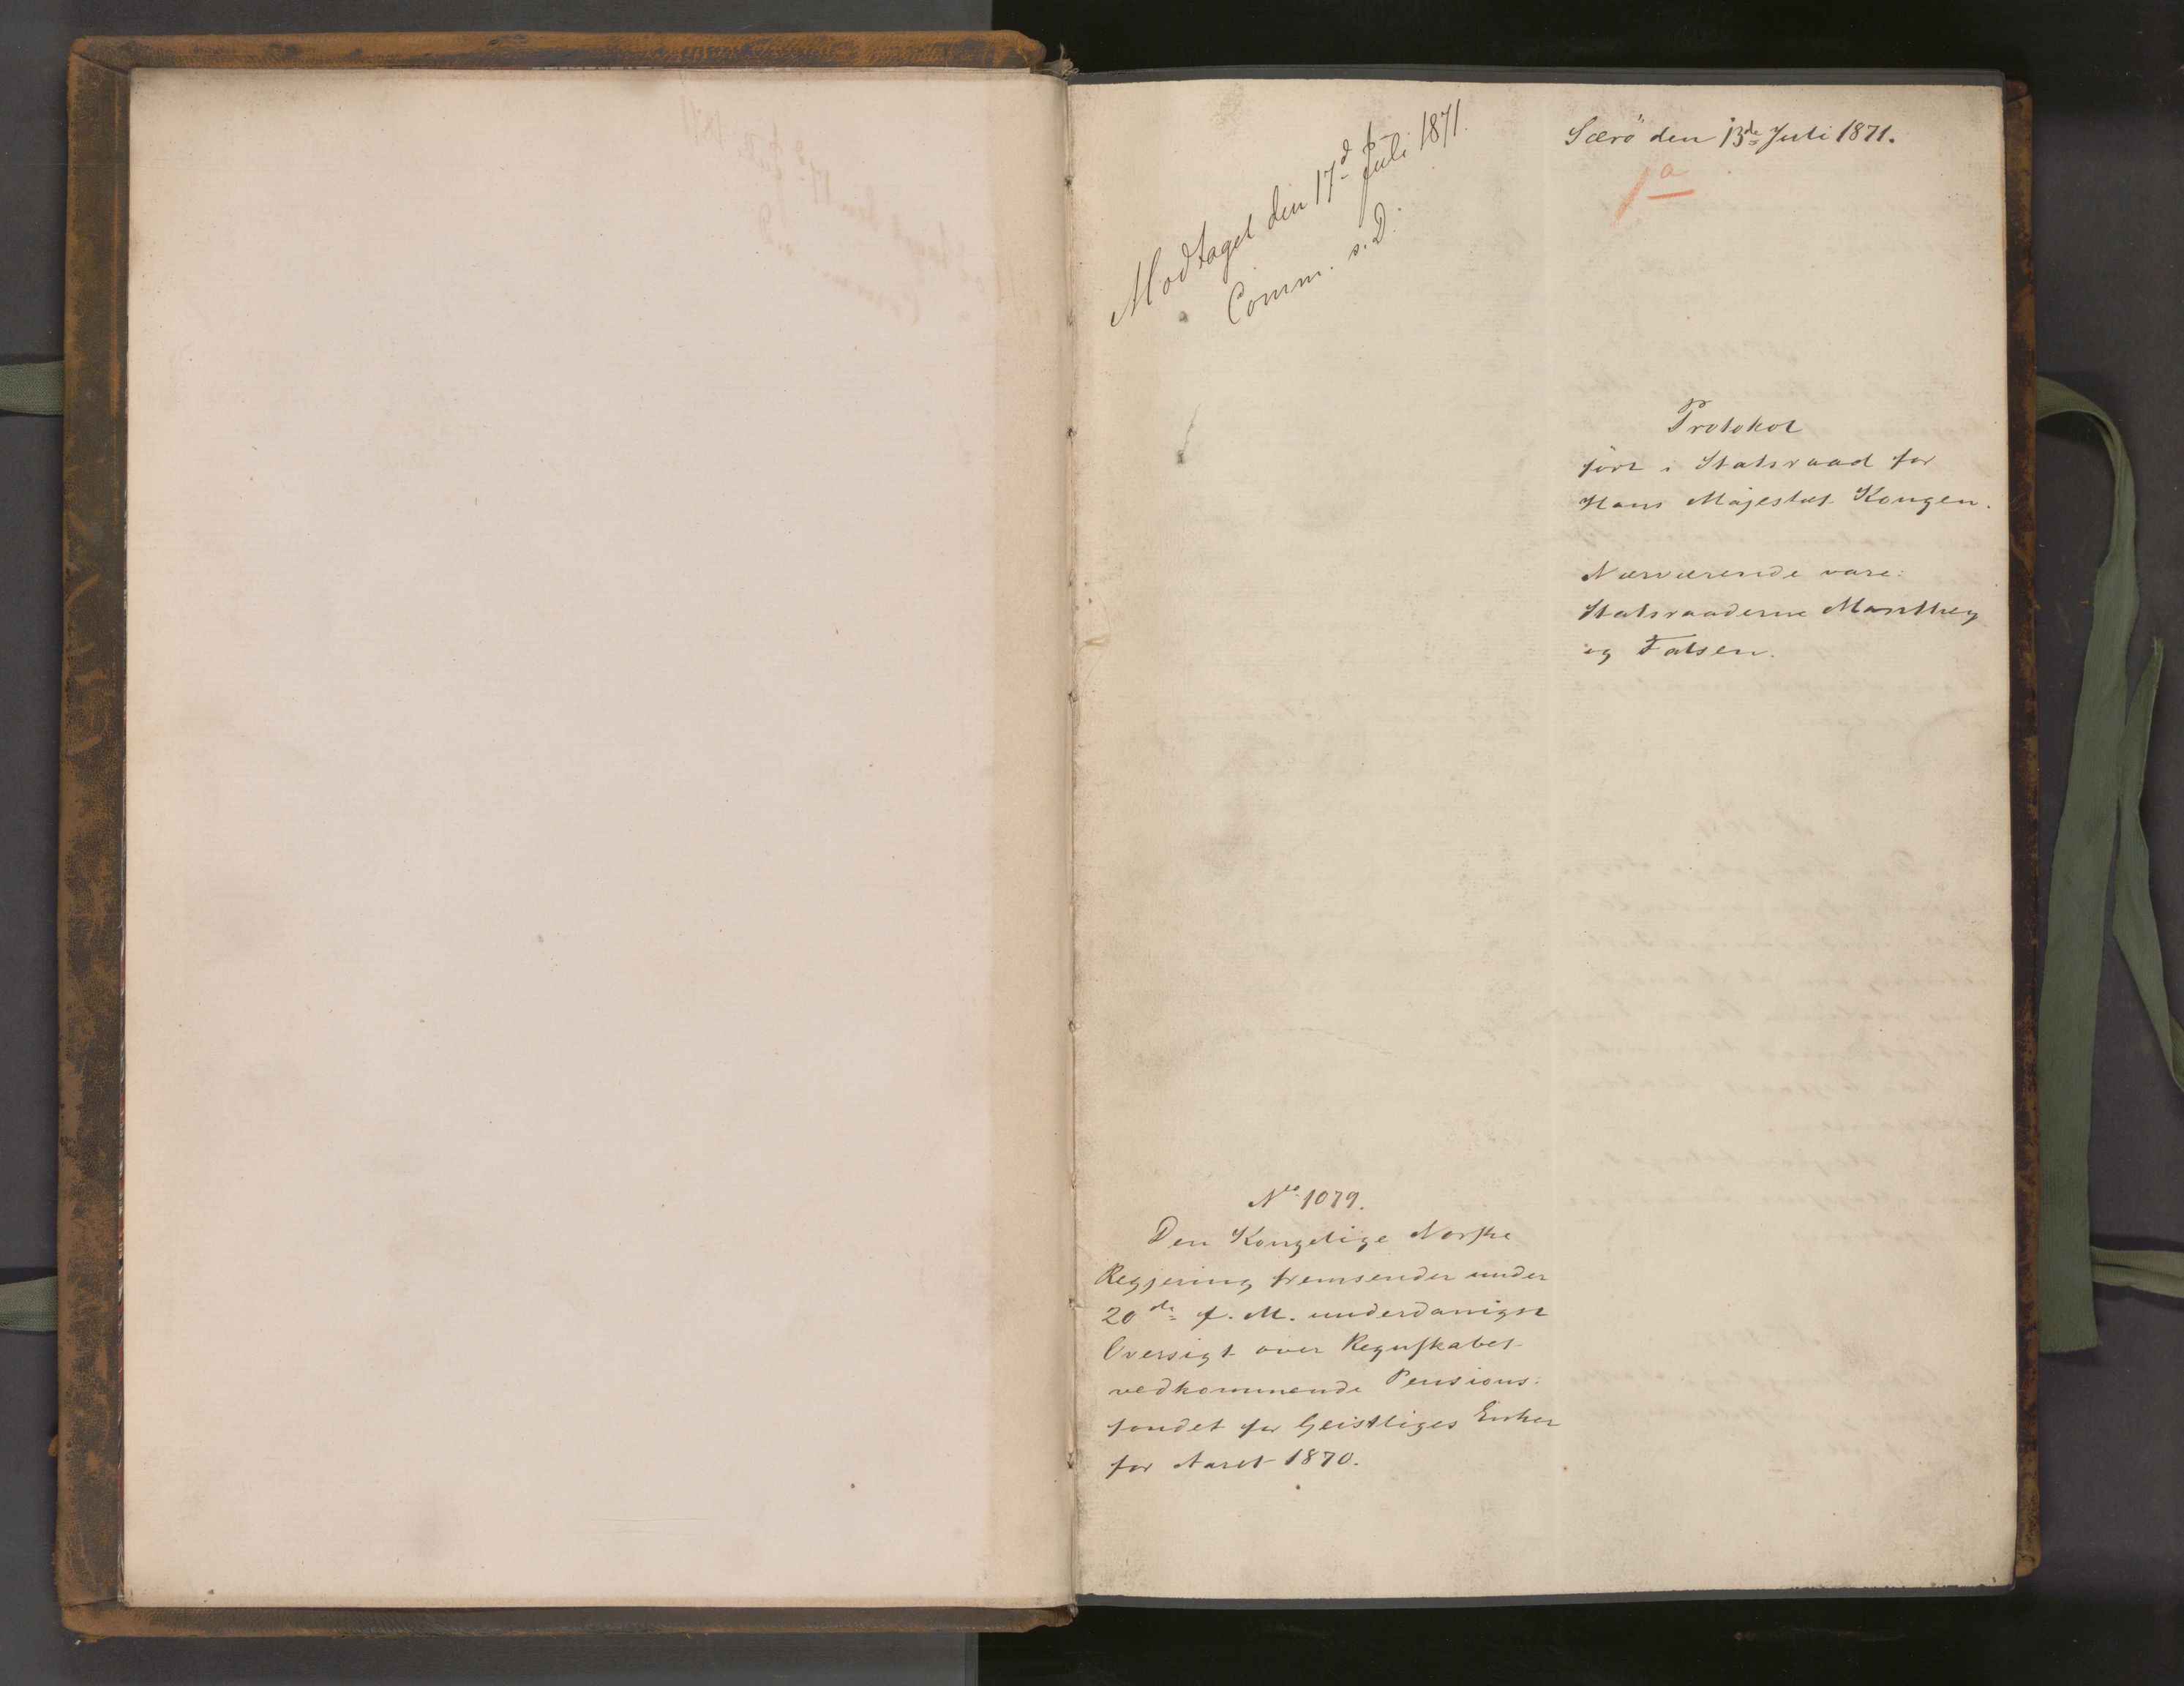 Modtaget den 17d Juli 1871.
Comm. s. D.
Særö den 13de Juli 1871.
1a
Protokol
fört i Statsraad for
Hans Majestæt Kongen.
Nærværende vare:
Statsraaderne Manthey
og Falsen.
No 1079.
Den Kongelige Norske
Regjering fremsender under
20de f. M. underdanigst
Oversigt over Regnskabet
vedkommende Pensions-
fondet for Geistliges Enker
for Aaret 1870.